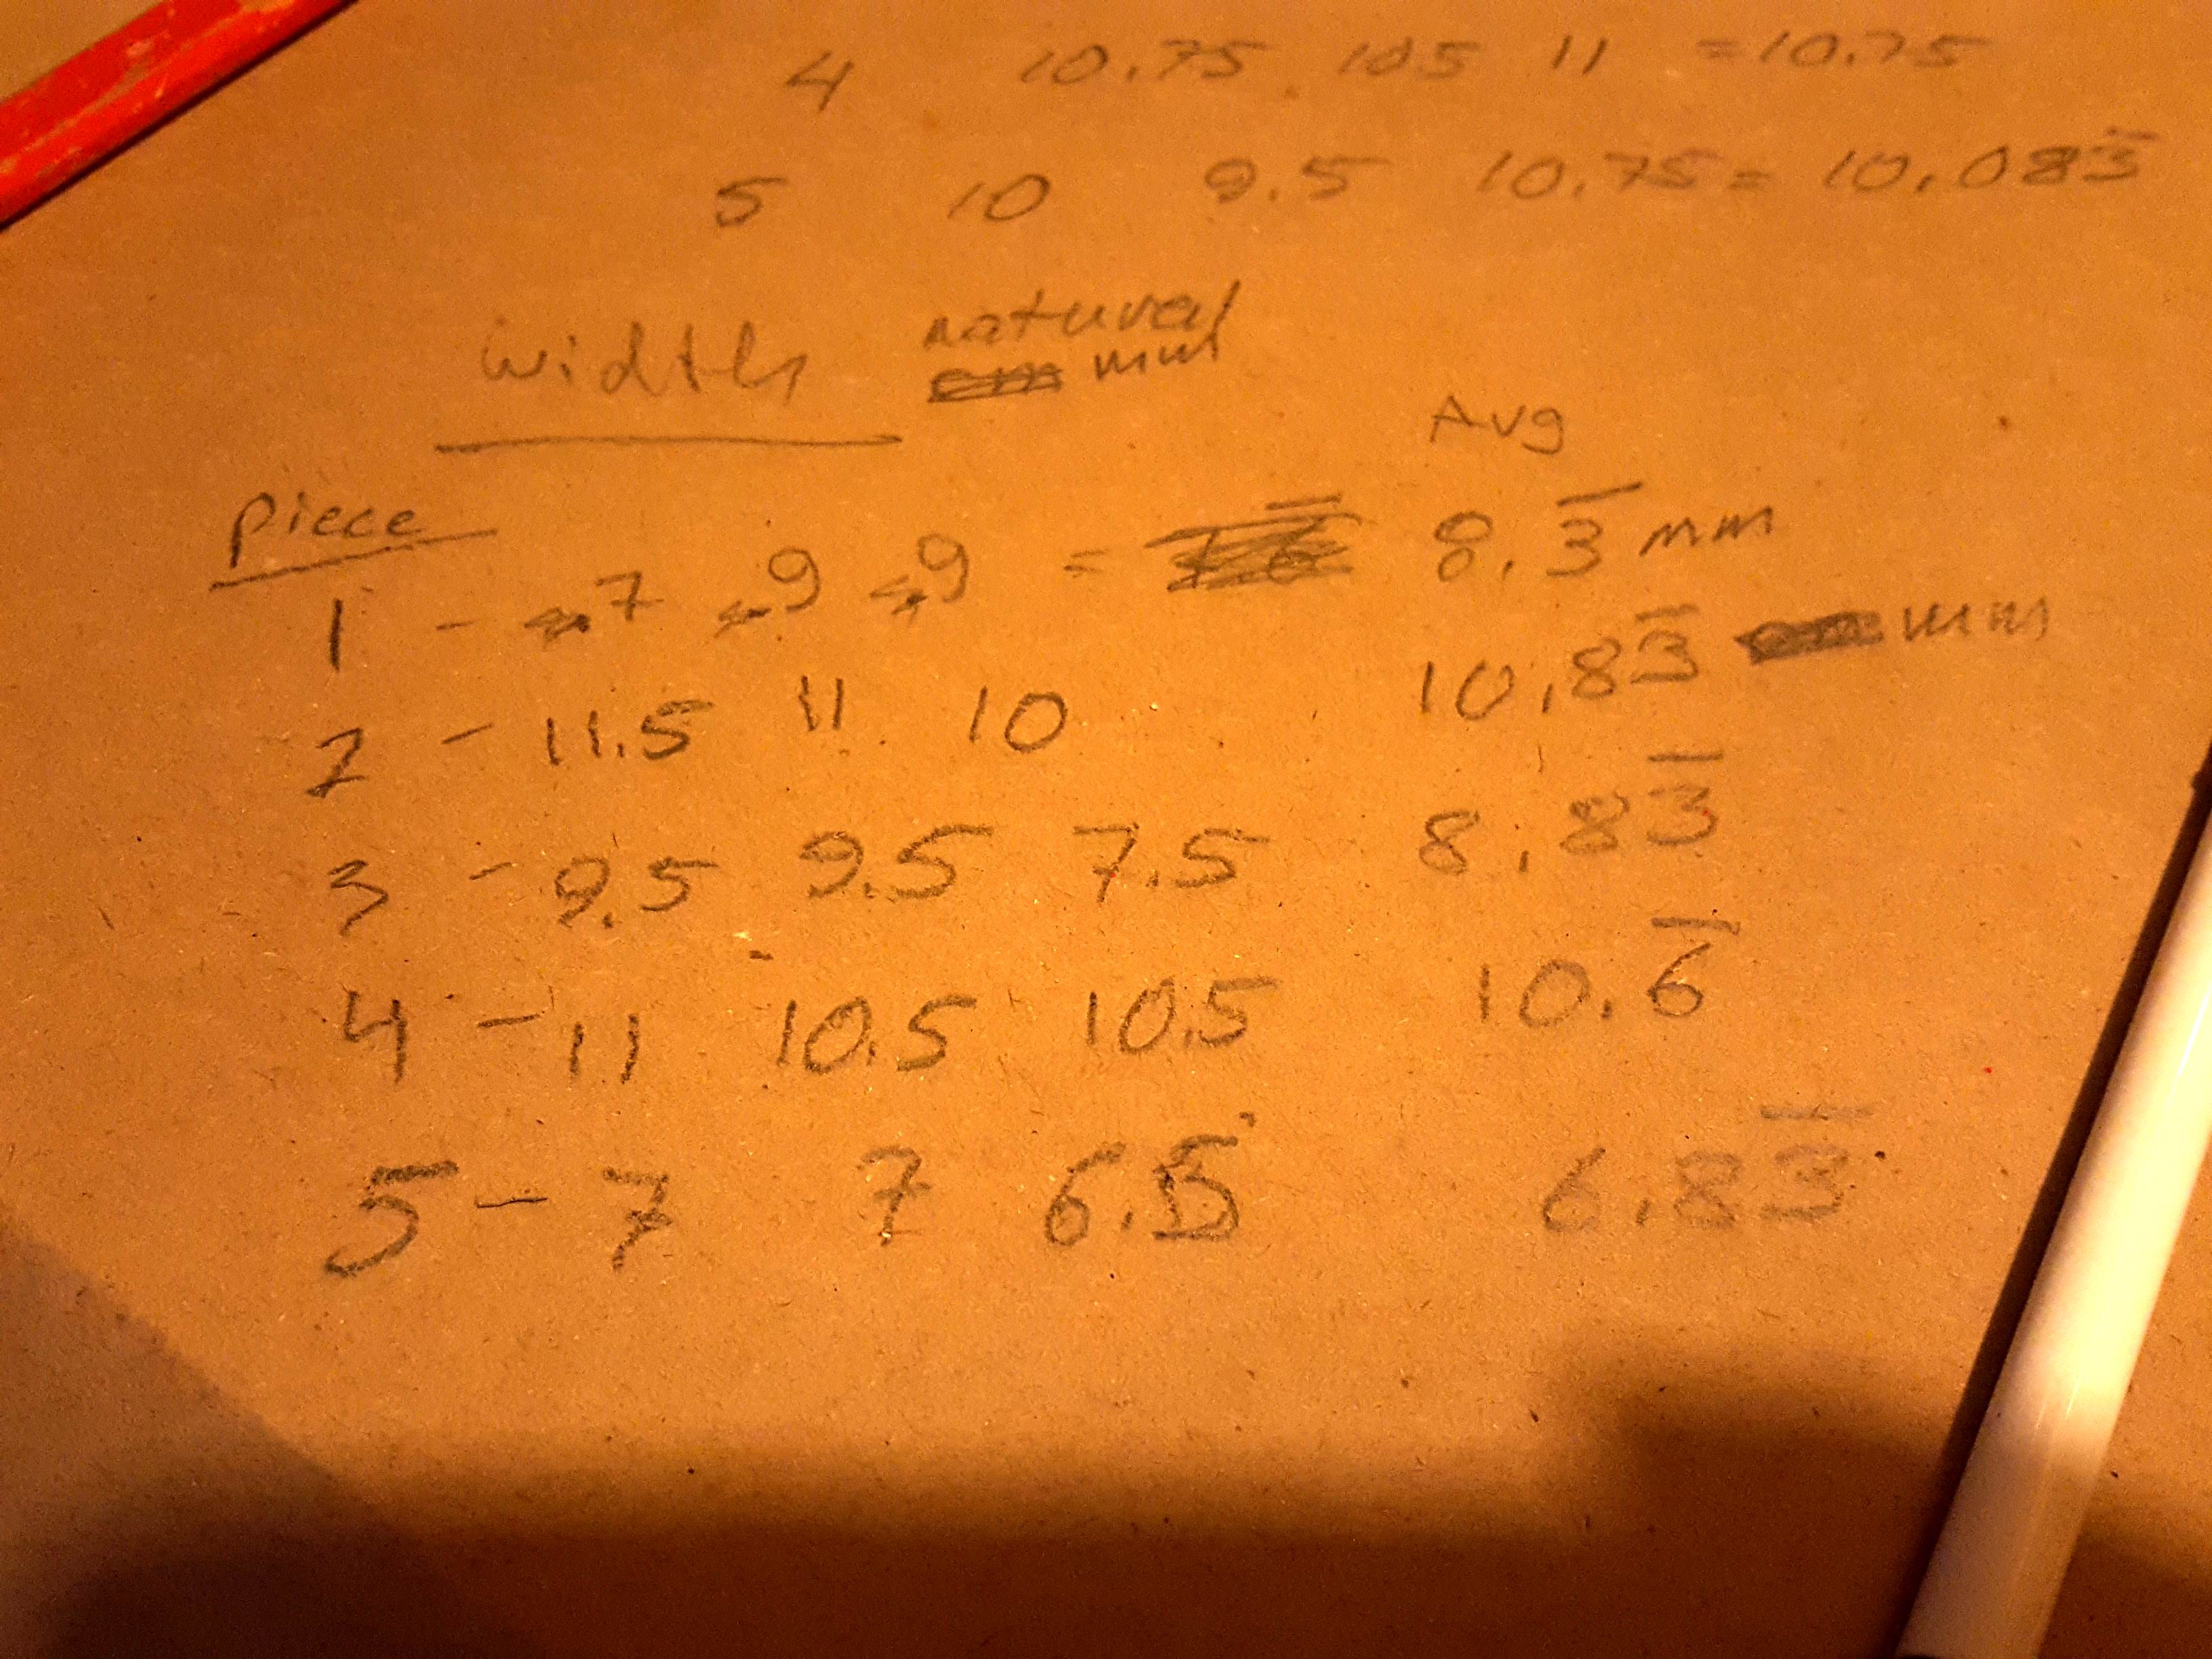 4 10.75 105 11 =10.75
5 10 9.5 10.75= 10.083̅
width natural
mm
Avg
piece
1 - 7 9 9 = 8.3̅ mm
2 - 11.5 11 10 10.83̅ mm
3 - 9.5 9.5 7.5 8.83̅
4 - 11 10.5 10.5 10.6̅
5 - 7 7 6.5 6.83̅